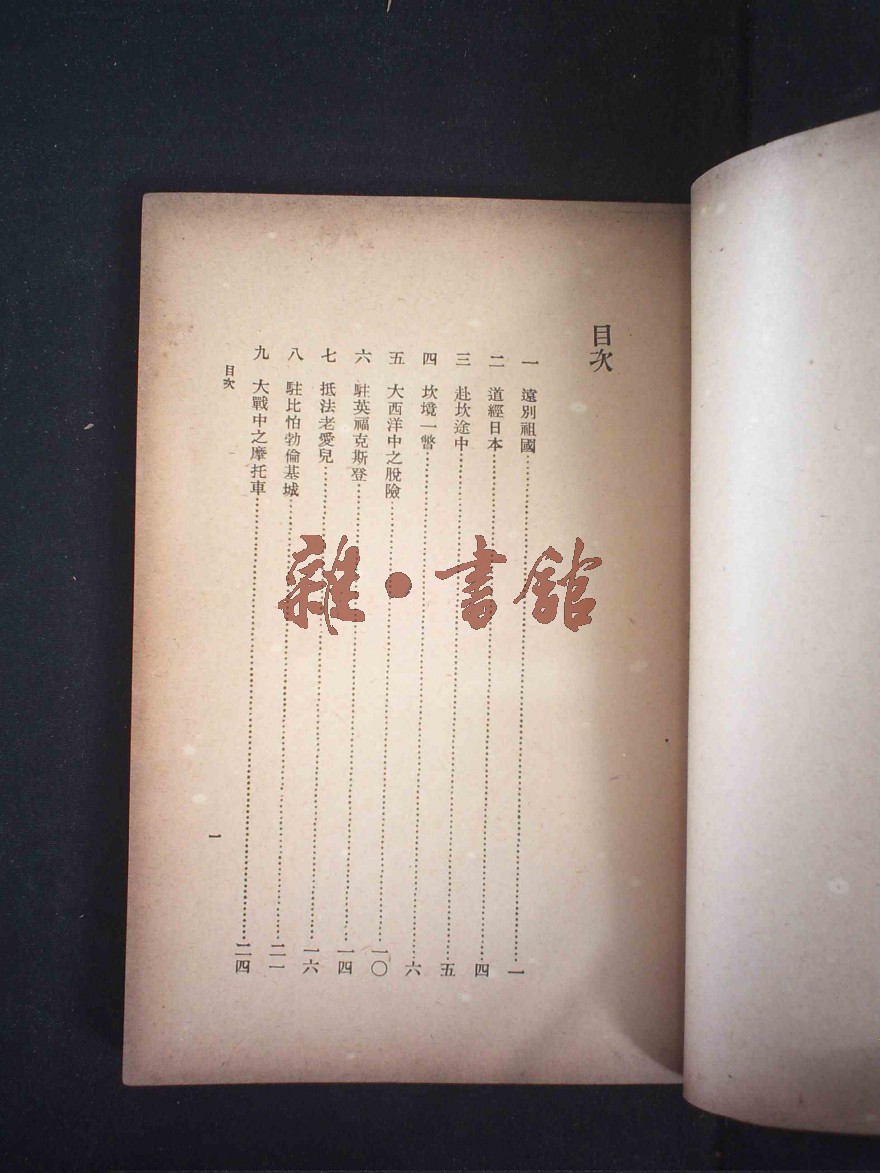 目次
一 遠別祖國……一
二 道經日本……四
三 赴坎途中……五
四 坎境一瞥……六
五 大西洋中之脫險……一〇
六 駐英福克斯登……一四
七 抵法老愛兒……一六
八 駐比怕勃倫基城……二一
九 大戰中之摩托車……二四
目次
一
雜·書館